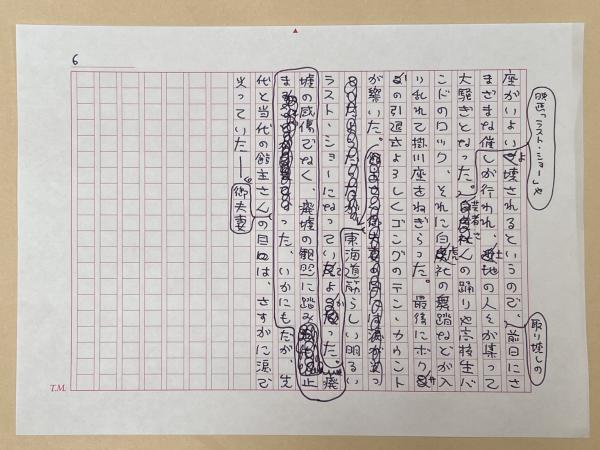 6
映画「ラスト・ショー」や
取り壊しの
座がいよいよ壊されるというので、前日にさ
まざまな催しが行われ、土地の人々が集って
大騒ぎとなった。芸者さんの踊りや高校生バ
ンドのロック、それに白虎社の舞踏などが入
り乱れて掛川座をねぎらった。最後にボクサ
ーの引退式よろしくゴングのテン・カウント
が響いた。
東海道筋らしい明るい
ラスト・ショーになっていてよかった。廃
墟の感傷でなく、廃墟の観照に踏み止
まった。いかにもだが、先
代と当代の館主さん御夫妻の目は、さすがに涙で
光っていた──
T.M.